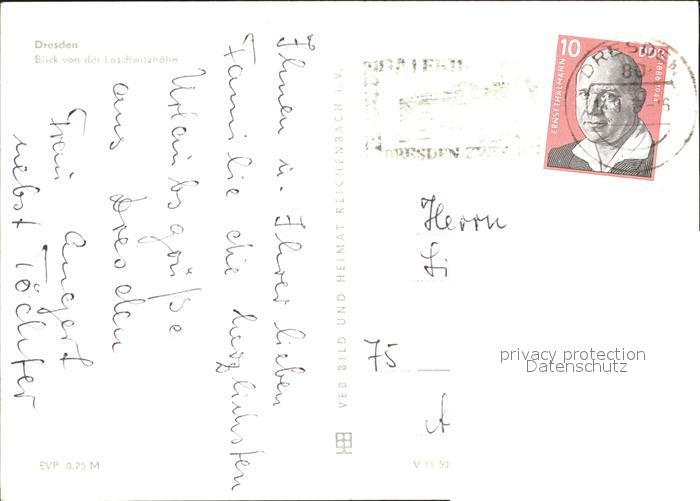 Dresden
Blick von der Loschwitzhöhe
Ihnen u. Ihrer lieben
Familie die herzlichsten
Urlaubsgrüße
aus Dresden
Frau Angert
nebst Töchter
EVP 0,25 M
VEB BILD UND HEIMAT REICHENBACH I. V.
V 11 50
10
DDR
ERNST THÄLMANN
1886-1944
DRESDEN
DRESDEN
Herrn
75
A
privacy protection
Datenschutz